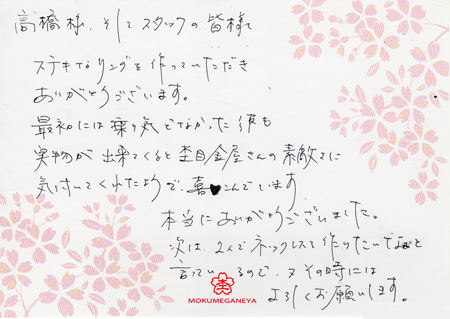 高橋様、そしてスタッフの皆様
ステキなリングを作っていただき
ありがとうございます。
最初には乗り気でなかった彼も
実物が出来てくると杢目金屋さんの素敵さに
気付いてくれたようで、喜んでいます
本当にありがとうございました。
次は、2人でネックレスを作りたいなあと
言っているので、又その時には
よろしくお願いします。
杢
MOKUMEGANEYA